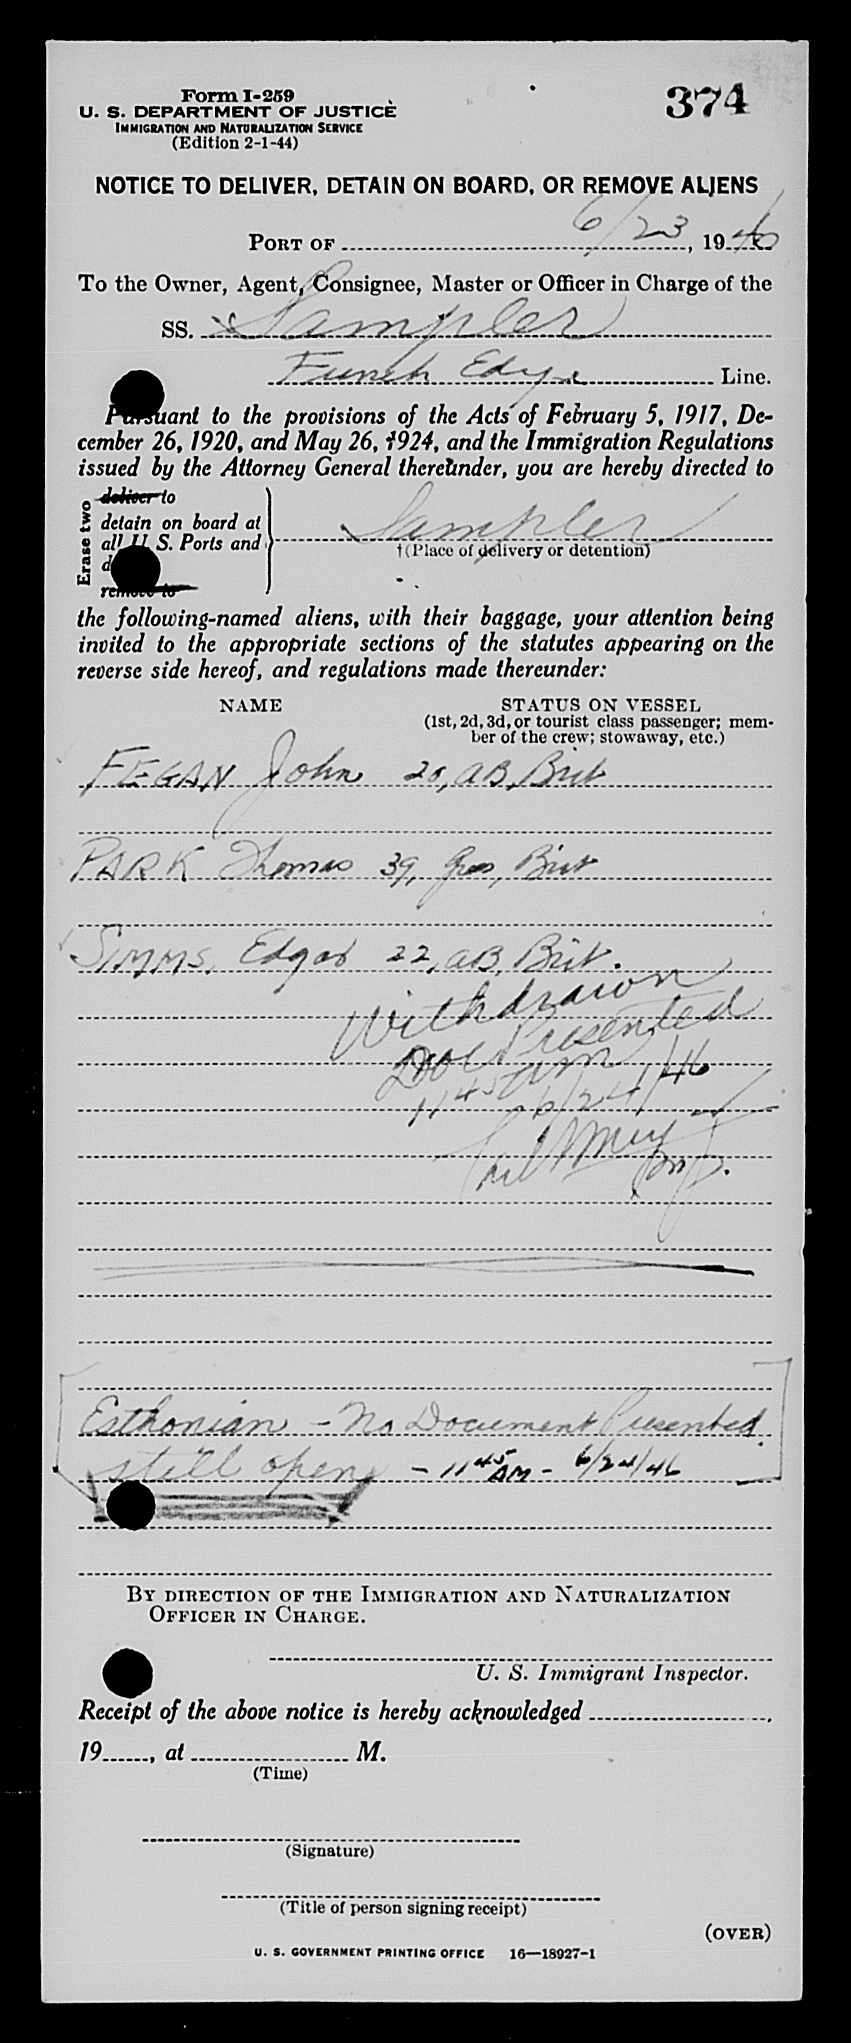 Form I-259
U. S. DEPARTMENT OF JUSTICE
IMMIGRATION AND NATURALIZATION SERVICE
(Edition 2-1-44)
374
NOTICE TO DELIVER, DETAIN ON BOARD, OR REMOVE ALIENS
PORT OF 6/23, 1946
To the Owner, Agent, Consignee, Master or Officer in Charge of the
SS. Sampler
Funch Edye Line.
Pursuant to the provisions of the Acts of February 5, 1917, De-
cember 26, 1920, and May 26, 1924, and the Immigration Regulations
issued by the Attorney General thereunder, you are hereby directed to
Erase two
deliver to
detain on board at
all U. S. Ports and
remove to
Sampler
†(Place of delivery or detention)
the following-named aliens, with their baggage, your attention being
invited to the appropriate sections of the statutes appearing on the
reverse side hereof, and regulations made thereunder:
NAME STATUS ON VESSEL
(1st, 2d, 3d, or tourist class passenger; mem-
ber of the crew; stowaway, etc.)
FEGAN John 20, AB, Brit
PARK Thomas 39, Brit
SIMMS, Edgar 22, AB, Brit.
Withdrawn
Doc Presented
11 45 AM
6/24/46
Esthonian - No Document Presented
still open - 11 45 AM - 6/24/46
BY DIRECTION OF THE IMMIGRATION AND NATURALIZATION
OFFICER IN CHARGE.
U. S. Immigrant Inspector.
Receipt of the above notice is hereby acknowledged ,
19 , at M.
(Time)
(Signature)
(Title of person signing receipt)
(OVER)
U. S. GOVERNMENT PRINTING OFFICE 16—18927-1